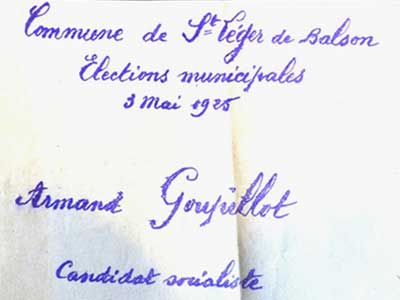 Commune de St Léger de Balson
Elections municipales
3 Mai 1925
Armand Goupillot
Candidat socialiste